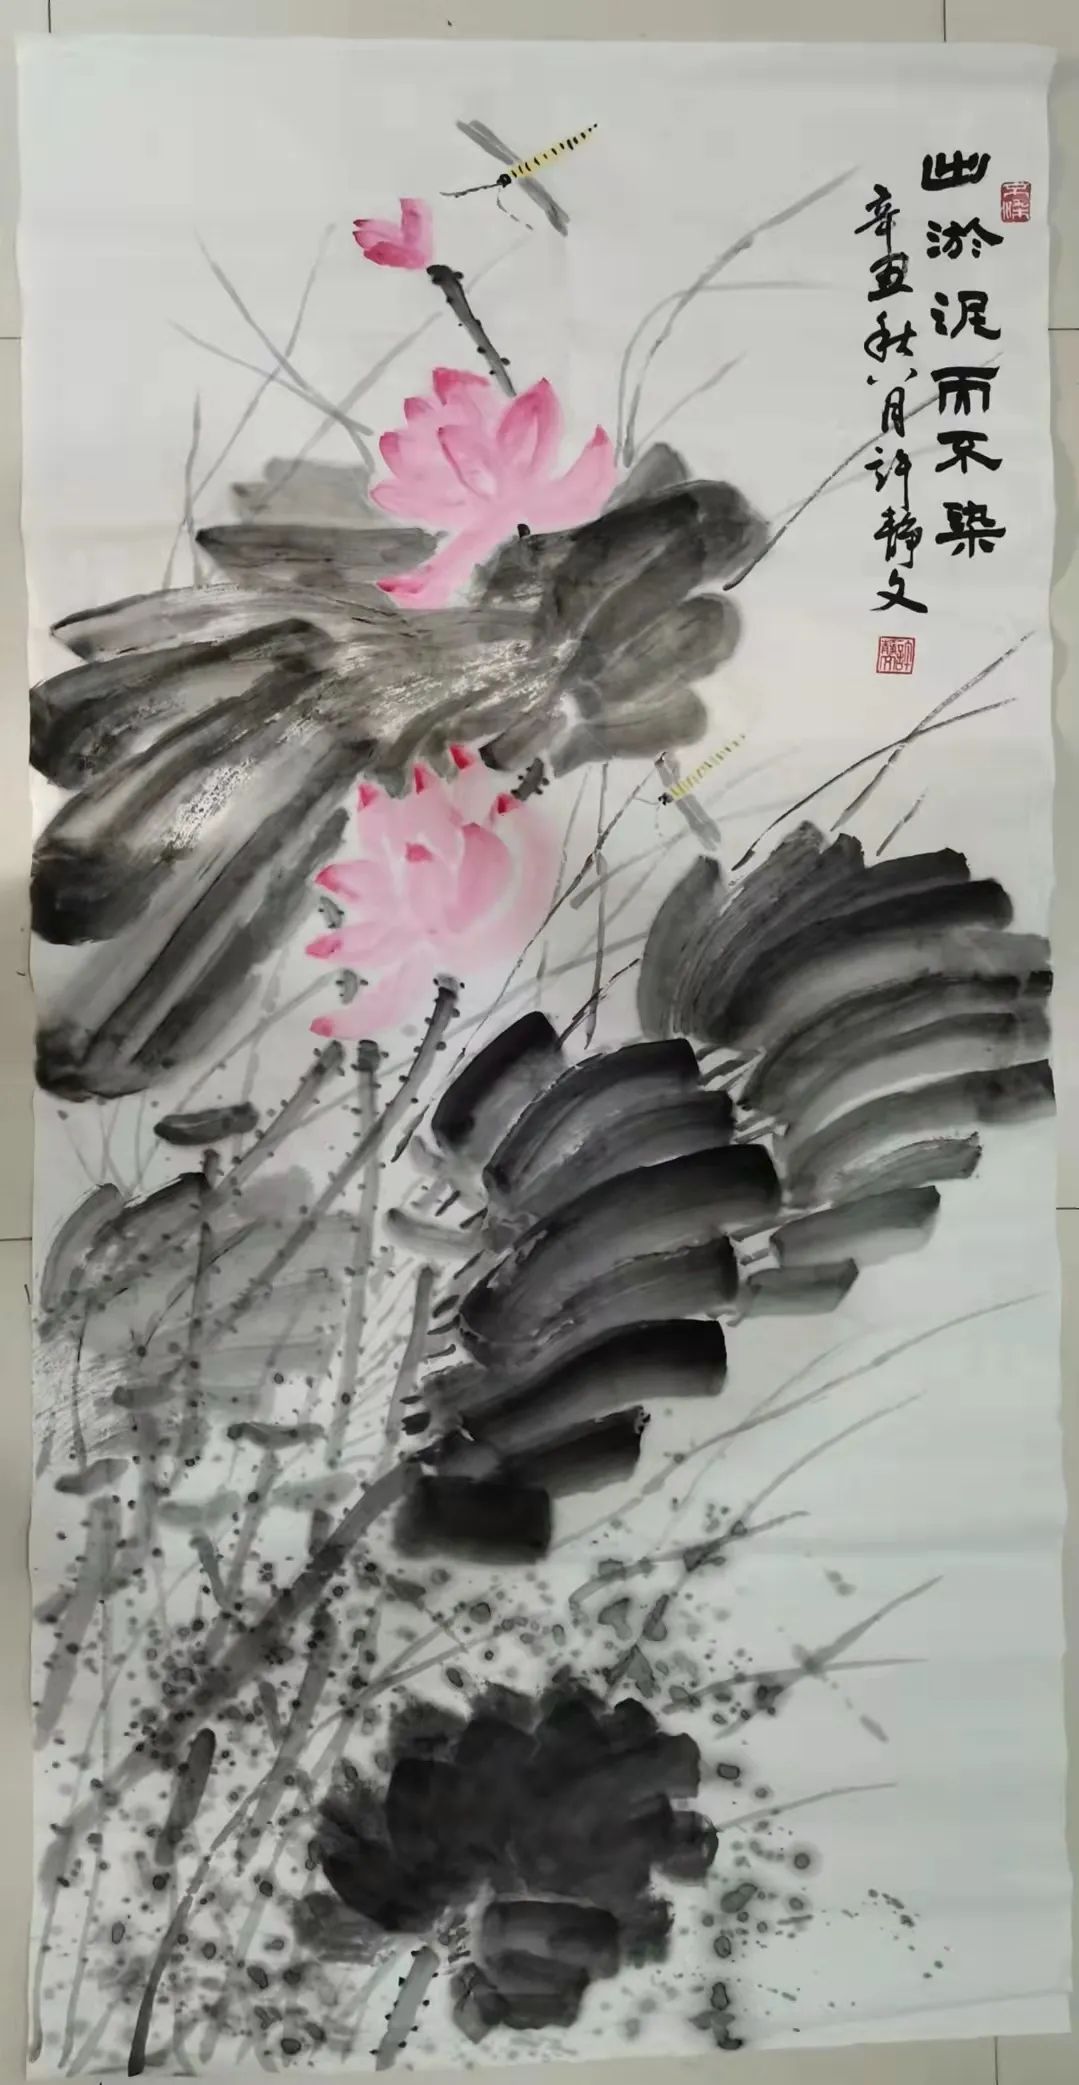 出淤泥而不染
辛丑秋八月许静文